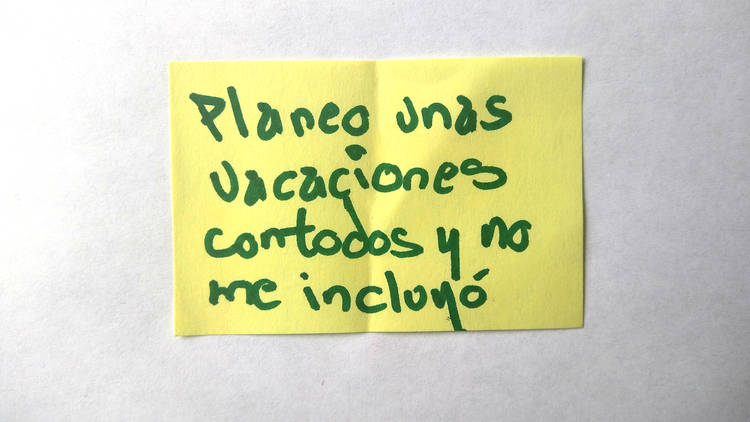 Planeo unas
vacaciones
contodos y no
me incluyó